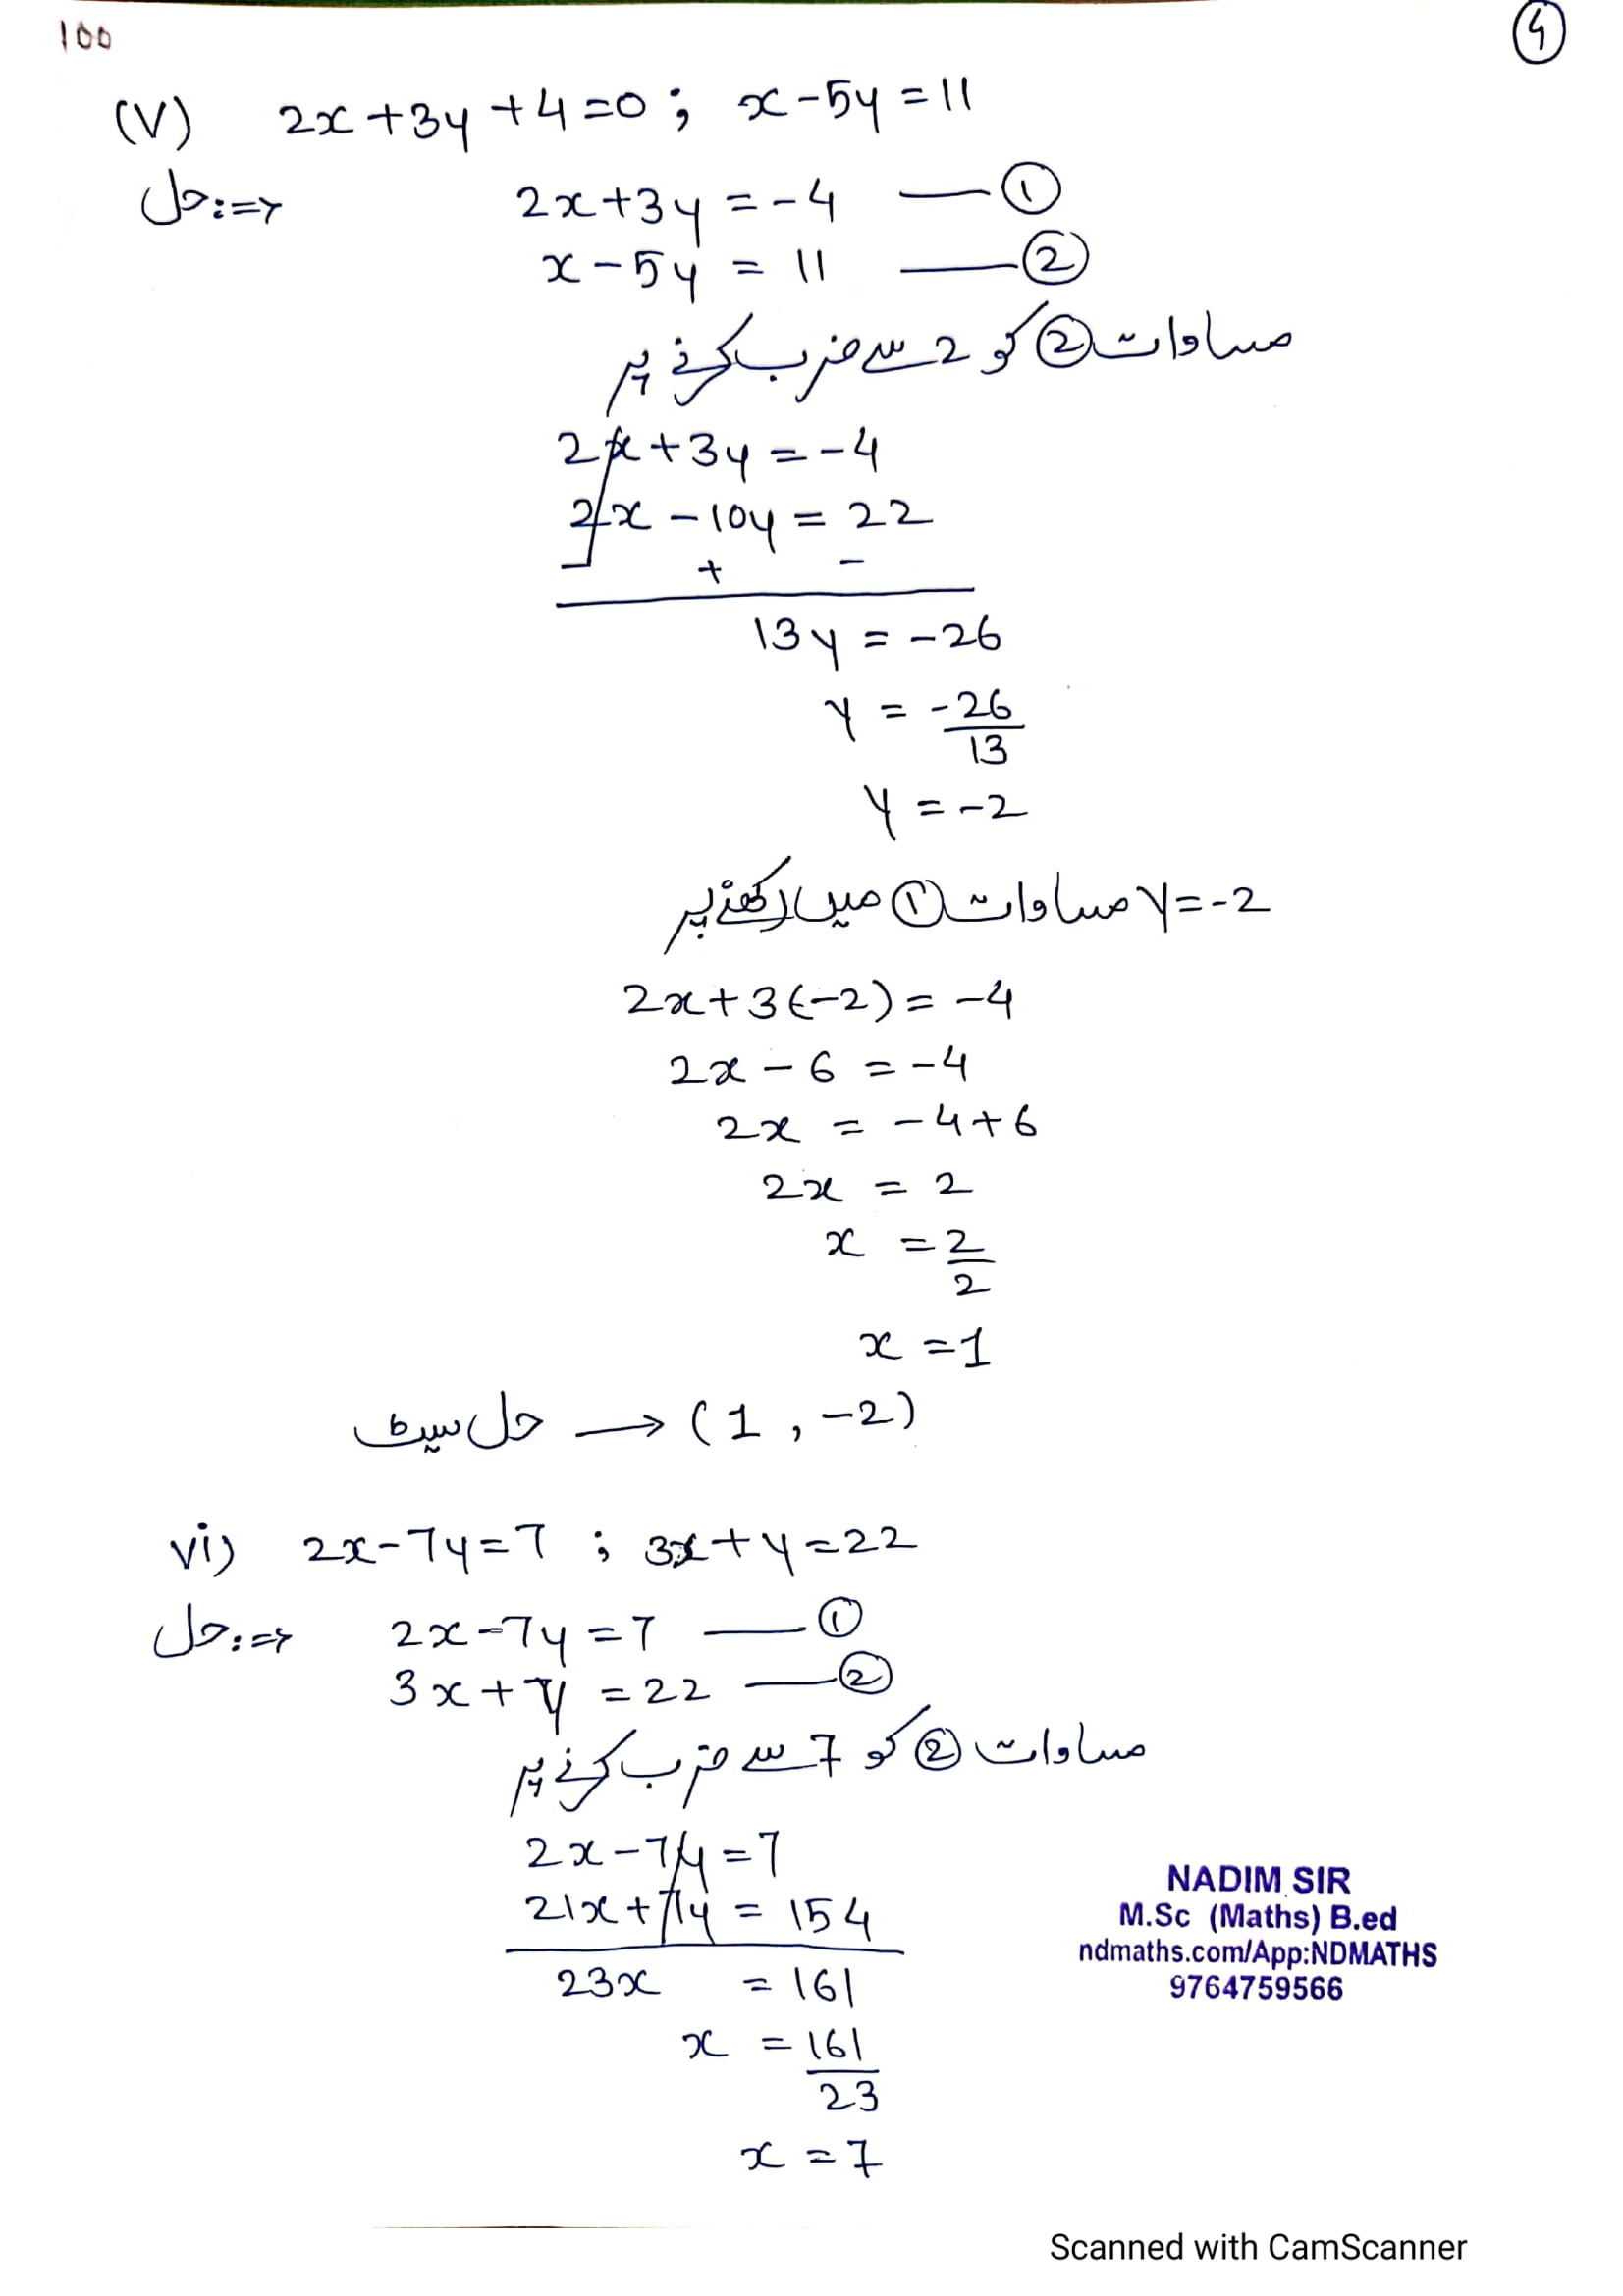 100
4
(V) 2x+3y+4=0 ; x-5y=11
حل:⇒ 2x+3y=-4 —①
x-5y=11 —②
مساوات ② کو 2 سے ضرب کرنے پر
2x+3y=-4
2x-10y=22
- + -
13y=-26
y=-26/13
y=-2
y=-2 مساوات ① میں رکھنے پر
2x+3(-2)=-4
2x-6=-4
2x=-4+6
2x=2
x=2/2
x=1
حل سیٹ → (1,-2)
vi) 2x-7y=7 ; 3x+y=22
حل:⇒ 2x-7y=7 —①
3x+y=22 —②
مساوات ② کو 7 سے ضرب کرنے پر
2x-7y=7
21x+7y=154
23x=161
x=161/23
x=7
NADIM SIR
M.Sc (Maths) B.ed
ndmaths.com/App:NDMATHS
9764759566
Scanned with CamScanner